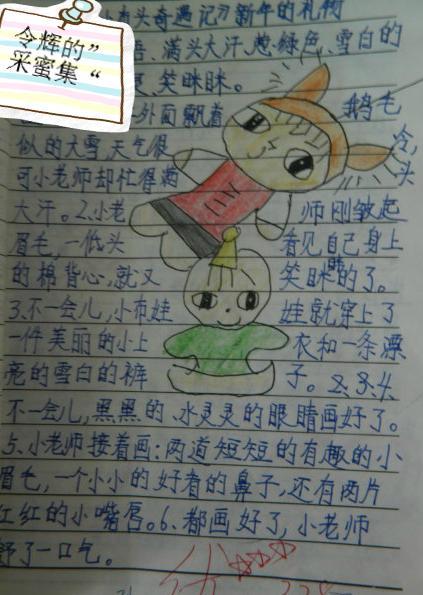 令辉的”
采蜜集“
头奇遇记》新年的礼物
满头大汗、葱绿色、雪白的
笑眯眯。
外面飘着鹅毛
似的大雪,天气很冷,
可小老师却忙得满头
大汗。2.小老师刚皱起
眉毛,一低头看见自己身上
的棉背心,就又笑眯眯的了。
3.不一会儿,小布娃娃就穿上了
一件美丽的小上衣和一条漂
亮的雪白的裤子。2、3、4.
不一会儿,黑黑的、水灵灵的眼睛画好了。
5.小老师接着画:两道短短的有趣的小
眉毛,一个小小的好看的鼻子,还有两片
红红的小嘴唇。6.都画好了,小老师
舒了一口气。
优